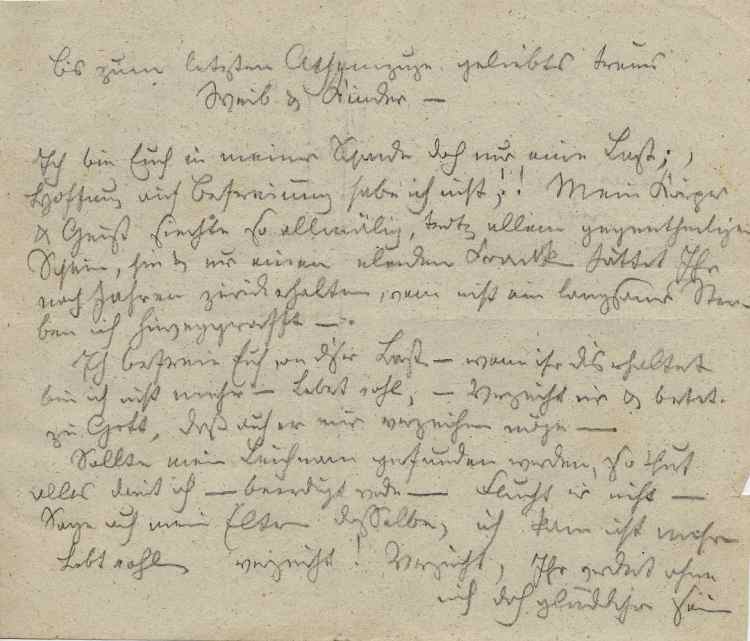 bis zum letzten Athemzuge geliebtes treues
Weib & Kinder —
Ich bin Euch in meiner Schande doch nur eine Last;
Hoffnung auf Befreiung habe ich nicht;!! Mein Körper
& Geist siechte so allmälig, trotz allem gegentheiligen
Schein, hin & nur einen elenden hättet Ihr
nach Jahren zurückerhalten, wenn nicht ein langsames Ster-
ben ich hinweggerafft —.
Ich befreie Euch von dieser Last — wenn ihr dies erhaltet
bin ich nicht mehr — Lebet wohl, — Verzeiht mir & betet
zu Gott, daß auch er mir verzeihen möge —
Sollte mein Leichnam gefunden werden, so thut
alles damit ich — beerdigt werde — Flucht mir nicht —
Sage auch mein Eltern dasselbe, ich kann nicht mehr
Lebt wohl verzeiht! Verzeiht, Ihr werdet ohne
mich doch glücklicher sein